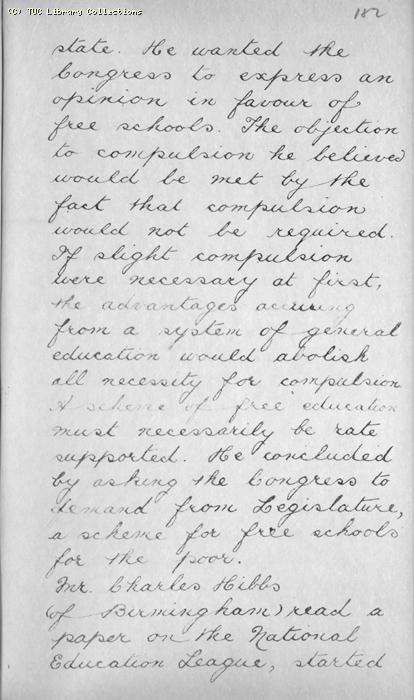 (C) TUC Library Collections
182
state. He wanted the
Congress to express an
opinion in favour of
free schools. The objection
to compulsion he believed
would be met by the
fact that compulsion
would not be required.
If slight compulsion
were necessary at first,
the advantages accruing
from a system of general
education would abolish
all necessity for compulsion
A scheme of free education
must necessarily be rate
supported. He concluded
by asking the Congress to
demand from Legislature,
a scheme for free schools
for the poor.
Mr. Charles Hibbs
(of Birmingham) read a
paper on the National
Education League, started